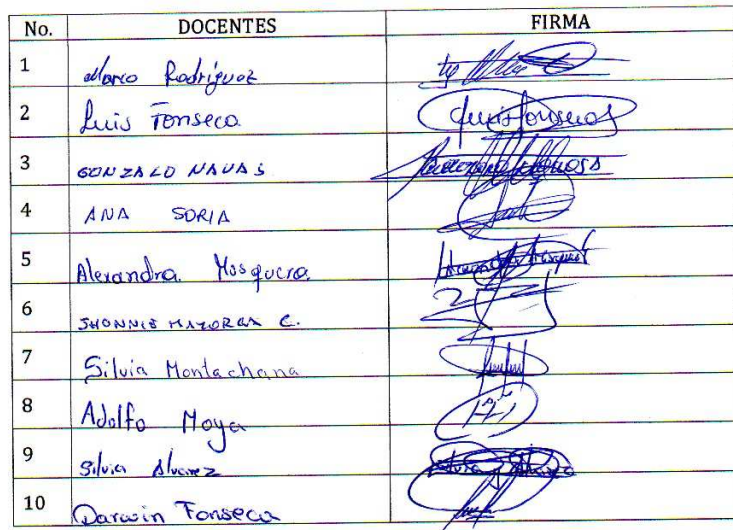 No. DOCENTES FIRMA
1 Marco Rodríguez
2 Luis Fonseca Luis Fonseca
3 GONZALO NAVAS
4 ANA SORIA
5 Alexandra Mosquera
6 JHONNIE MAYORGA C.
7 Silvia Montachana
8 Adolfo Moya
9 Silvia Alvarez
10 Darwin Fonseca